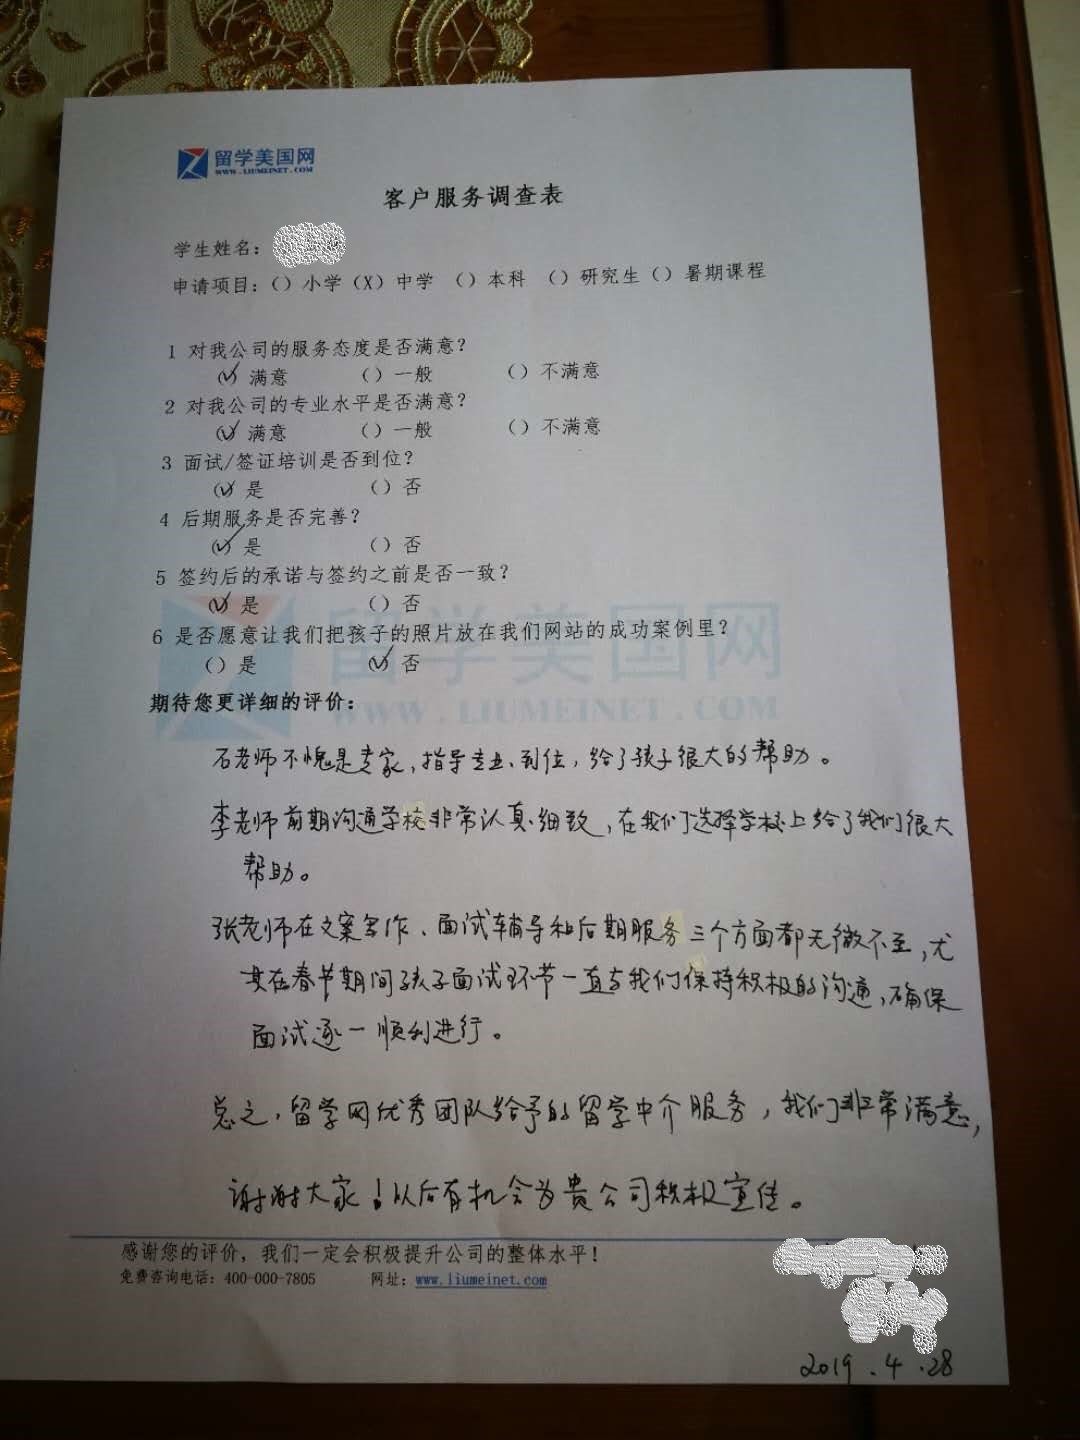 留学美国网
WWW.LIUMEINET.COM
客户服务调查表
学生姓名：
申请项目：（）小学（X）中学 （）本科 （）研究生（）暑期课程
1 对我公司的服务态度是否满意？
（✓）满意 （）一般 （）不满意
2 对我公司的专业水平是否满意？
（✓）满意 （）一般 （）不满意
3 面试/签证培训是否到位？
（✓）是 （）否
4 后期服务是否完善？
（✓）是 （）否
5 签约后的承诺与签约之前是否一致？
（✓）是 （）否
6 是否愿意让我们把孩子的照片放在我们网站的成功案例里？
（）是 （✓）否
留学美国网
WWW.LIUMEINET.COM
期待您更详细的评价：
石老师不愧是专家，指导专业、到位，给了孩子很大的帮助。
李老师前期沟通学校非常认真细致，在我们选择学校上给了我们很大
帮助。
张老师在文案写作、面试辅导和后期服务三个方面都无微不至，尤
其在春节期间孩子面试环节一直与我们保持积极的沟通，确保
面试逐一顺利进行。
总之，留学网优秀团队给予的留学中介服务，我们非常满意，
谢谢大家！以后有机会为贵公司积极宣传。
感谢您的评价，我们一定会积极提升公司的整体水平！
免费咨询电话：400-000-7805 网址：www.liumeinet.com
2019.4.28